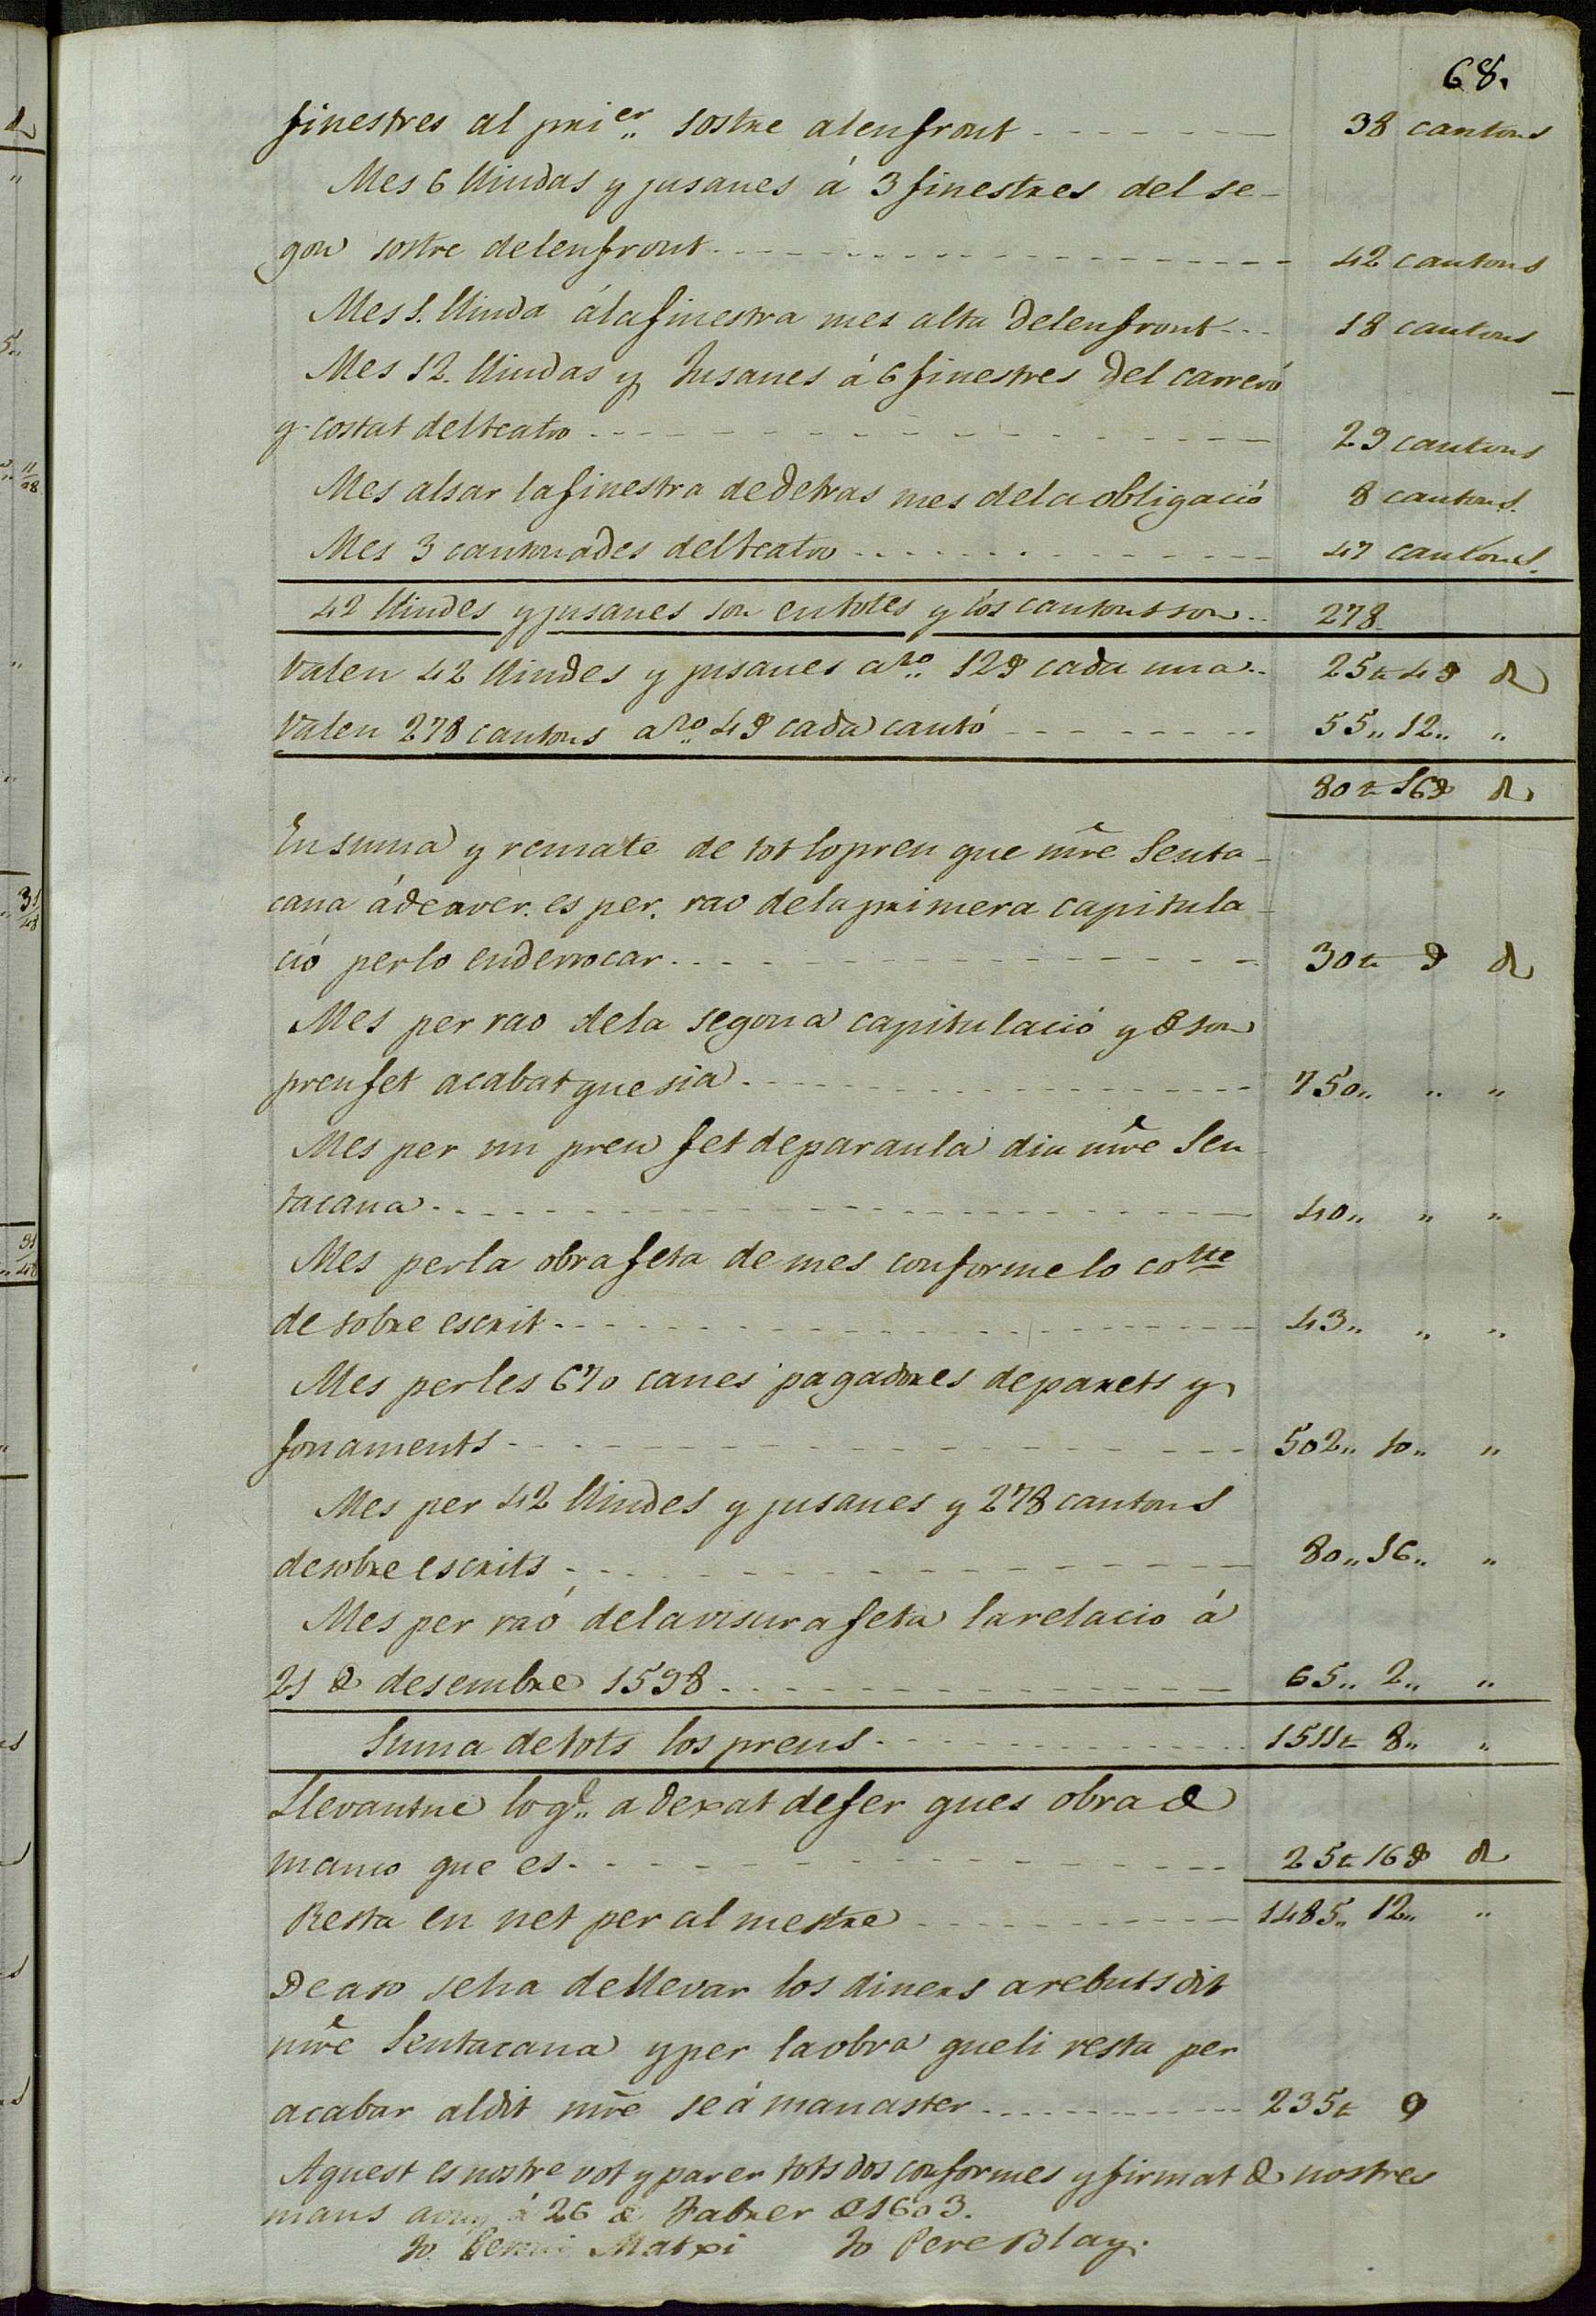 68.
finestres al pri.er sostre al enfront - - - - - - 38 cantons
Mes 6 llindas y jusanes á 3 finestres del se-
gon sostre del enfront - - - - - - 42 cantons
Mes 1. llinda á la finestra mes alta del enfront - - - 18 cantons
Mes 12. llindas y Jusanes á 6 finestres del carreró
y costat del teatro - - - - - - 29 cantons
Mes alsar la finestra de detras mes de la obligació 8 cantons.
Mes 3 cantonades del teatro - - - - - - 47 cantons.
42 llindes y jusanes son en totes y los cantons son - - 278
Valen 42 llindes y jusanes a ro. 12 s cada una - - 25 ll 4 s d
Valen 278 cantons a ro. 4 s cada cantó - - - - - - 55,, 12,, ,,
80 ll 16 s d
En suma y remate de tot lo preu que mre Senta-
cana á de aver. es per. rao de la primera capitula-
ció per lo enderrocar - - - - - - 30 ll s d
Mes per rao de la segona capitulació y de son
preu fet acabat que sia - - - - - - 750,, ,, ,,
Mes per un preu fet de paraula diu mre Sen-
tacana - - - - - - 40,, ,, ,,
Mes per la obra feta de mes conforme lo co tte
de sobre escrit - - - - - - 43,, ,, ,,
Mes per les 670 canes pagadores de parets y
fonaments - - - - - - 502,, 10,, ,,
Mes per 42 llindes y jusanes y 278 cantons
de sobre escrits - - - - - - 80,, 16,, ,,
Mes per raó de la visura feta la relacio á
21 de desembre 1598 - - - - - - 65,, 2,, ,,
Suma de tots los preus - - - - - - 1511 ll 8,, ,,
Llevantne lo q.e a dexat de fer ques obra de
manco que es - - - - - - 25 ll 16 s d
Resta en net per al mestre - - - - - - 1485,, 12,, ,,
De aso se ha de llevar los diners a rebuts dit
mre Sentacana y per la obra que li resta per
acabar al dit mre se á manaster - - - - - - 235 ll 9
Aquest es nostre vot y parer tots dos conformes y firmat de nostres
mans á 26 de Fabrer de 1603.
Jo Matxi Jo Pere Blay.